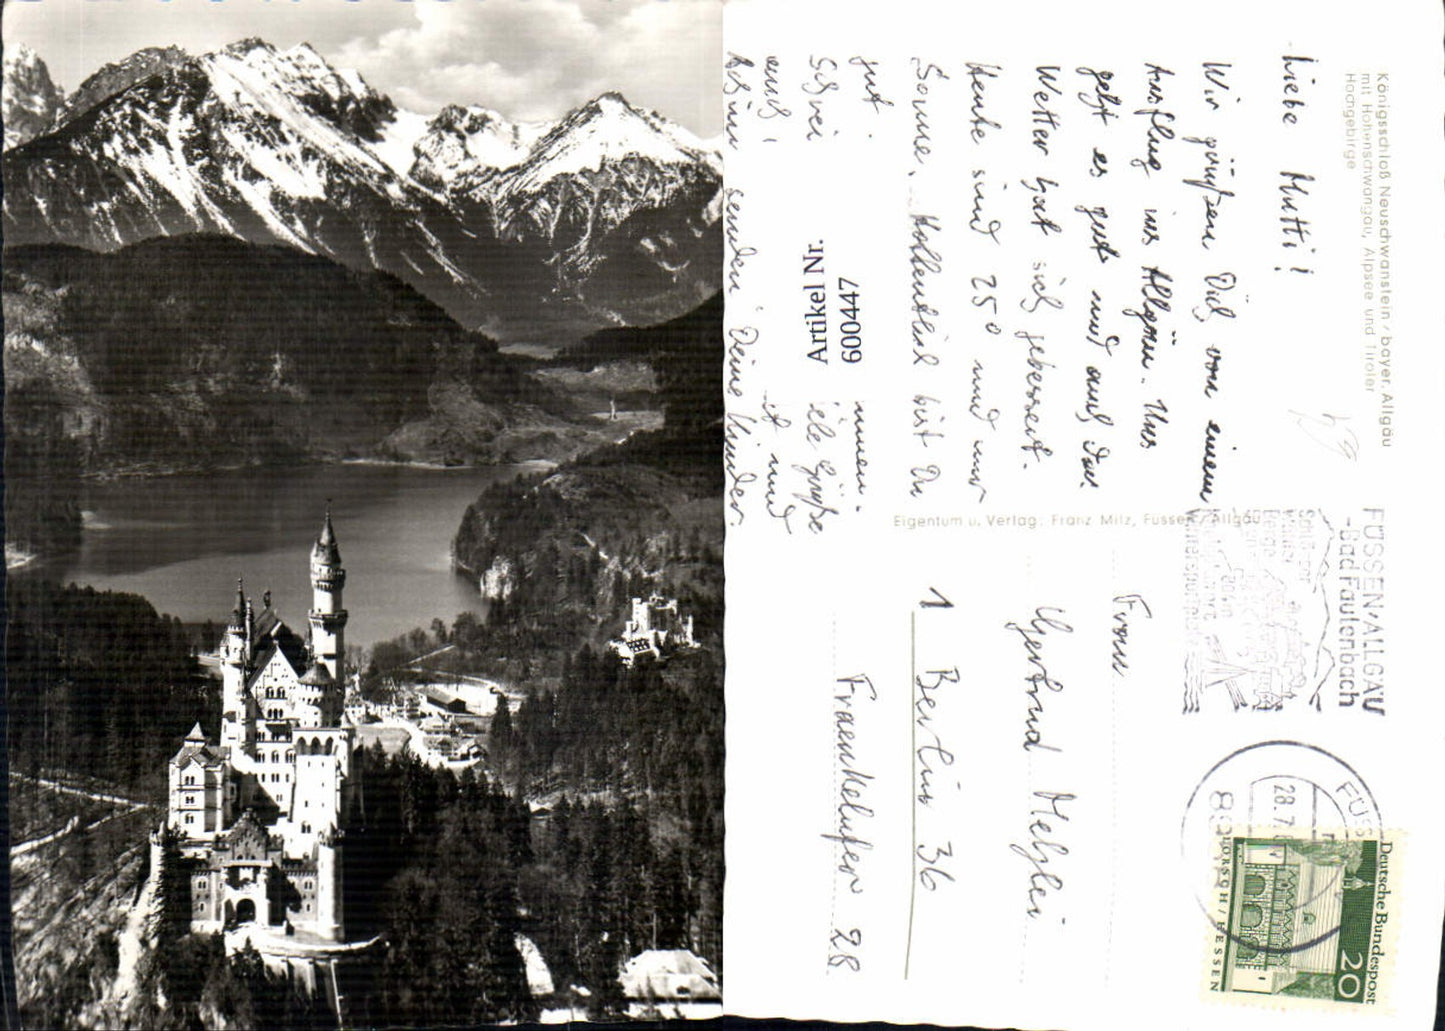 Königsschloß Neuschwanstein / bayer. Allgäu
mit Hohenschwangau, Alpsee und Tiroler
Hochgebirge
Liebe Mutti!
Wir grüßen Dich von einem
Ausflug ins Allgäu. Uns
geht es gut und auch das
Wetter hat sich gebessert.
Heute sind 25° und nur
Sonne. Hoffentlich bist Du
gut
Schrei
auch
senden Deine Kinder.
und
Grüße
Artikel Nr.
600447
Eigentum u. Verlag: Franz Milz, Füssen / Allgäu
FÜSSEN/ALLGÄU
-Bad Faulenbach
28.7
Deutsche Bundespost
20
LORSCH / HESSEN
Frau
Gertrud
1 Berlin 36
Fraenkelufer 28